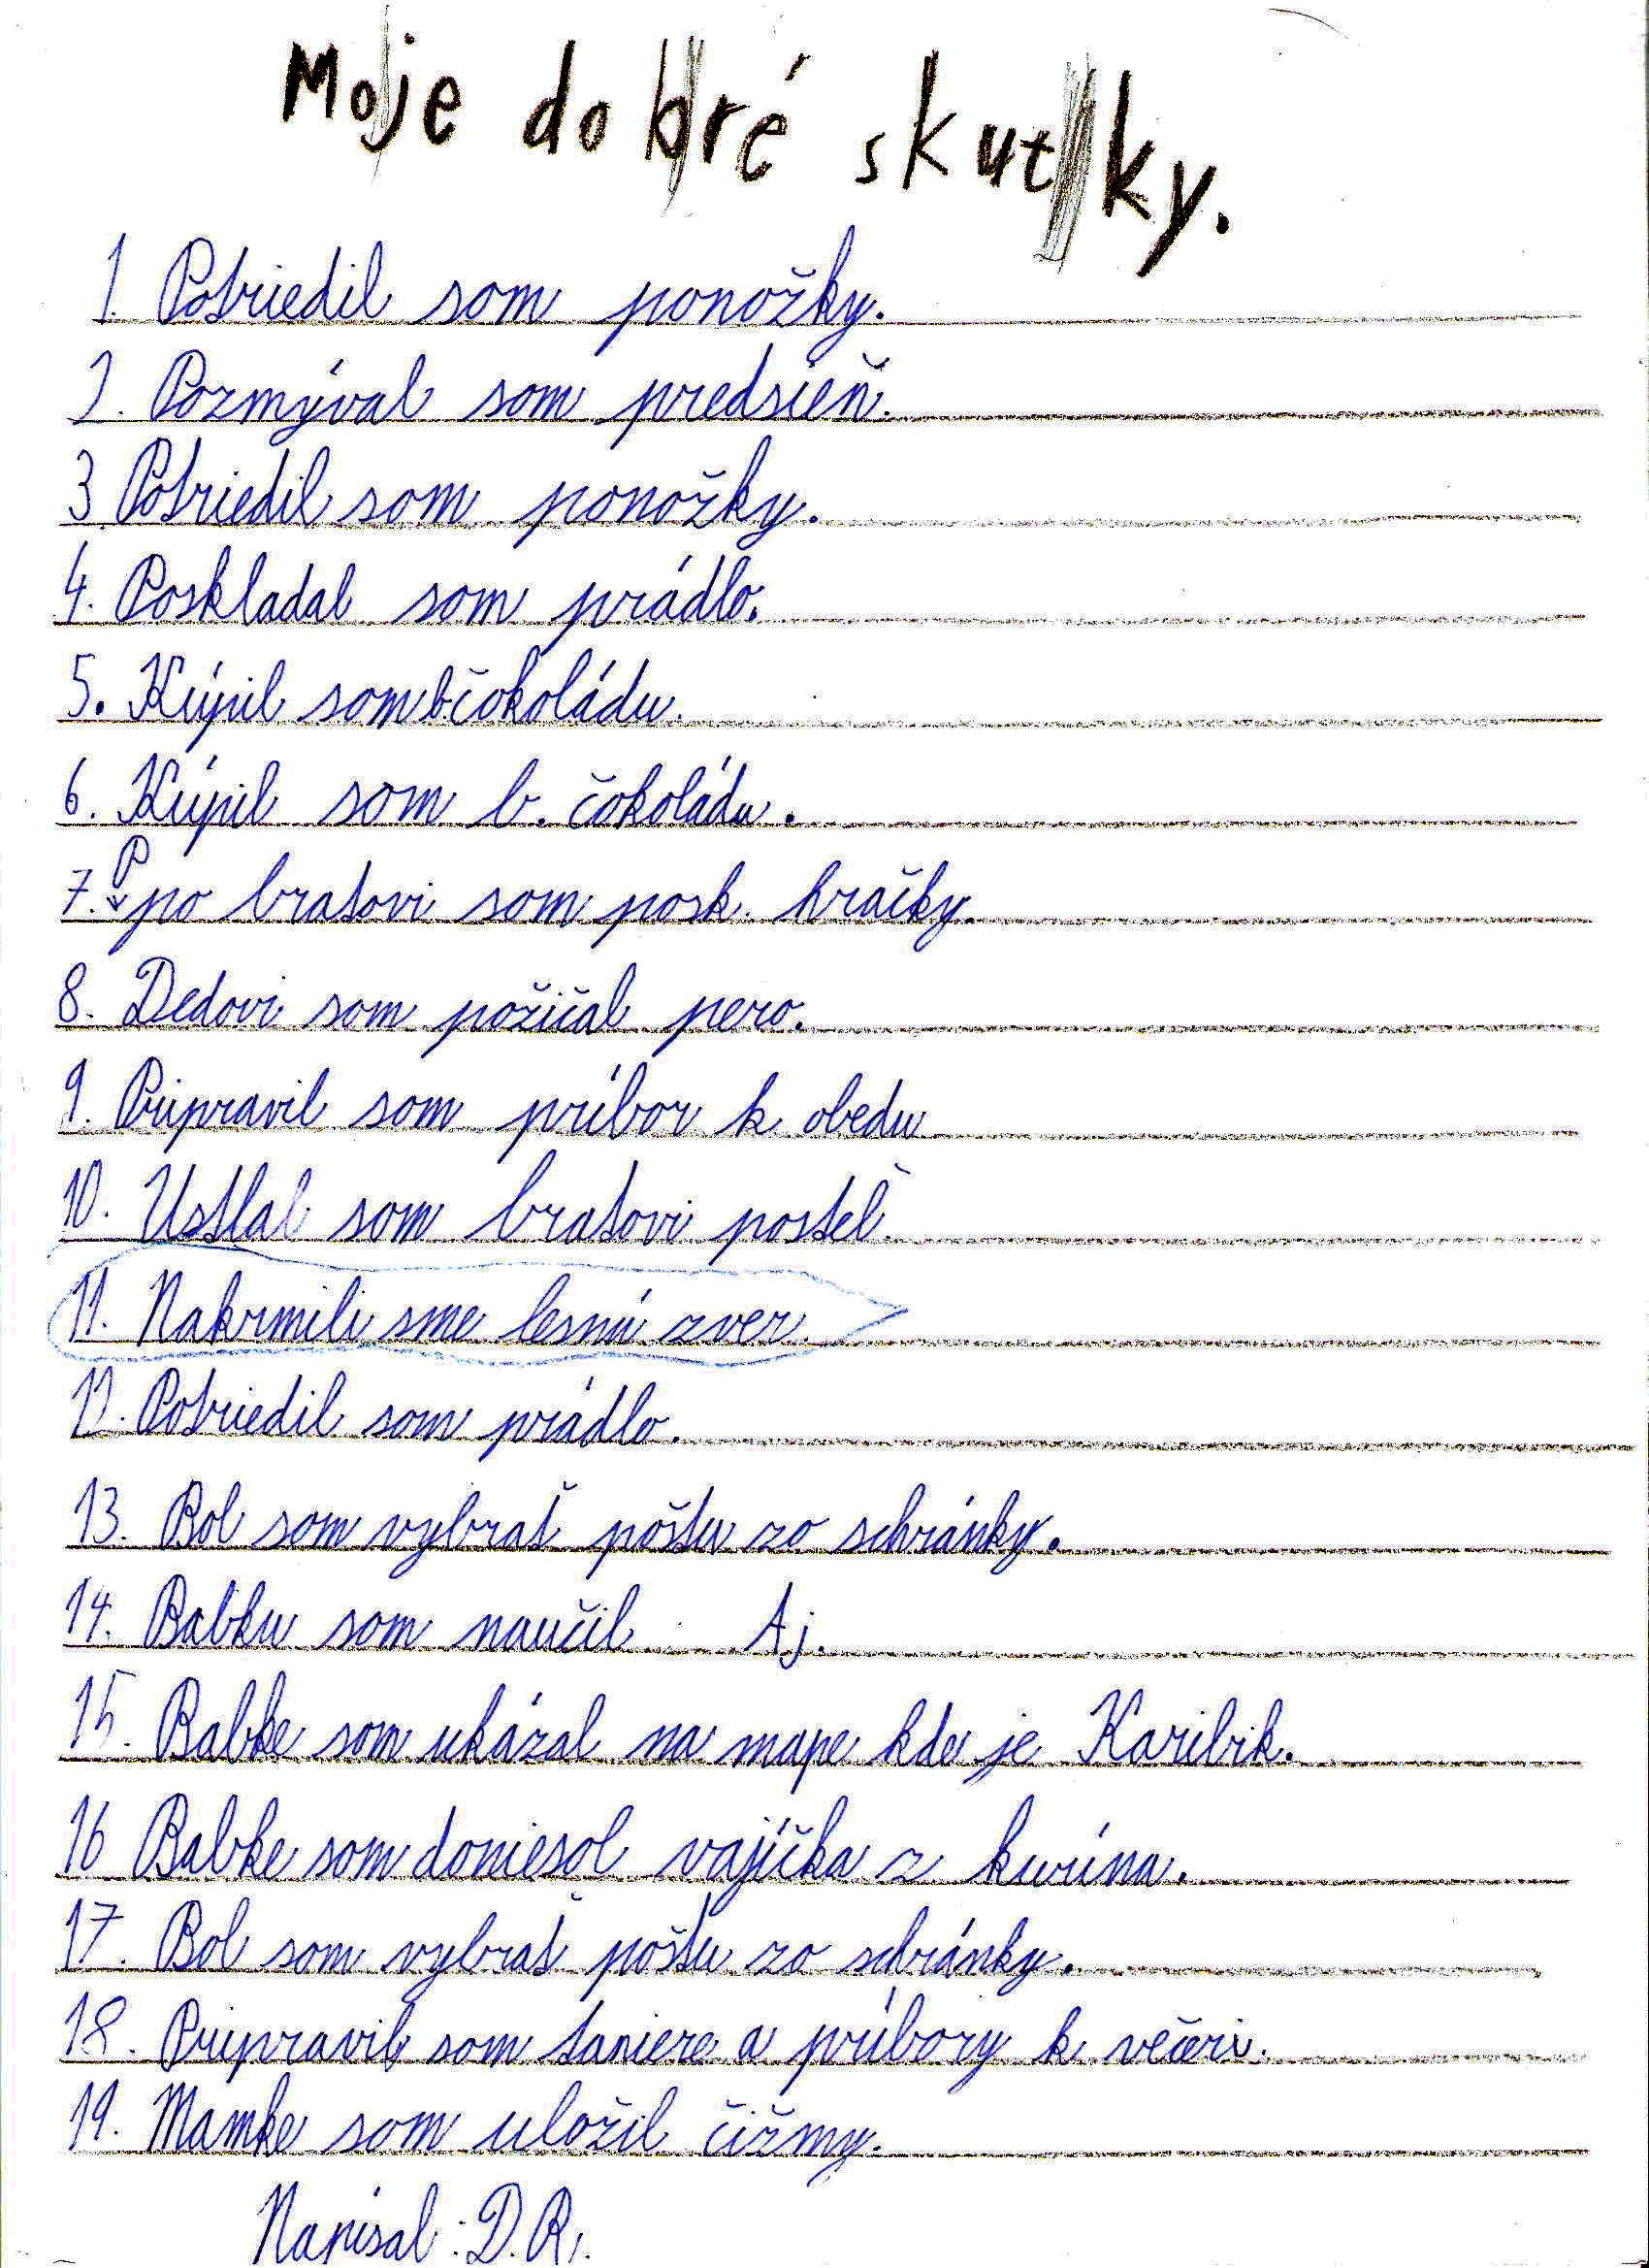 Moje dobré skutky.
1. Potriedil som ponožky.
2. Pozmýval som predsieň.
3 Potriedil som ponožky.
4. Poskladal som prádlo.
5. Kúpil som b.čokoládu.
6. Kúpil som b. čokoládu.
P
7. po bratovi som posk. hračky.
8. Dedovi som požičal pero.
9. Pripravil som príbor k obedu
10. Ustlal som bratovi posteľ.
11. Nakrmili sme lesnú zver.
12. Potriedil som prádlo.
13. Bol som vybrať poštu zo schránky.
14. Babku som naučil Aj.
15. Babke som ukázal na mape kde je Karibik.
16 Babke som doniesol vajíčka z kurína.
17. Bol som vybrať poštu zo schránky.
18. Pripravil som taniere a príbory k večeri.
19. Mamke som uložil čižmy.
Napísal: D.R.